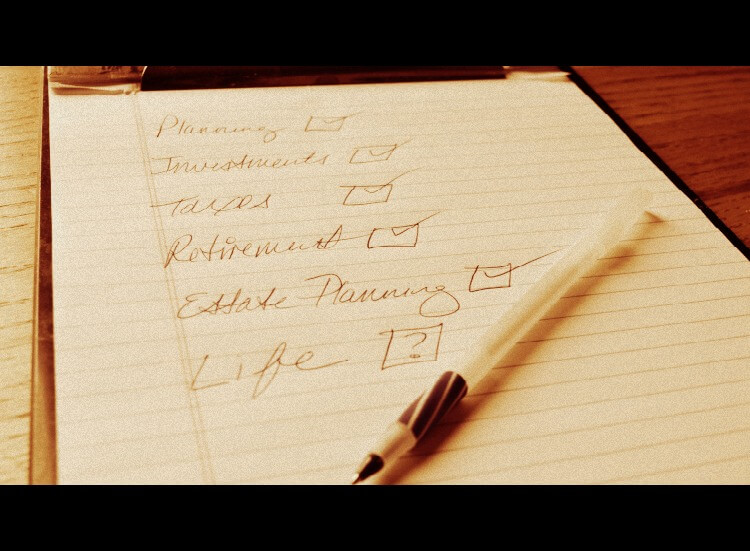 Planning ☑
Investments ☑
Taxes ☑
Retirement ☑
Estate Planning ☑
Life ?